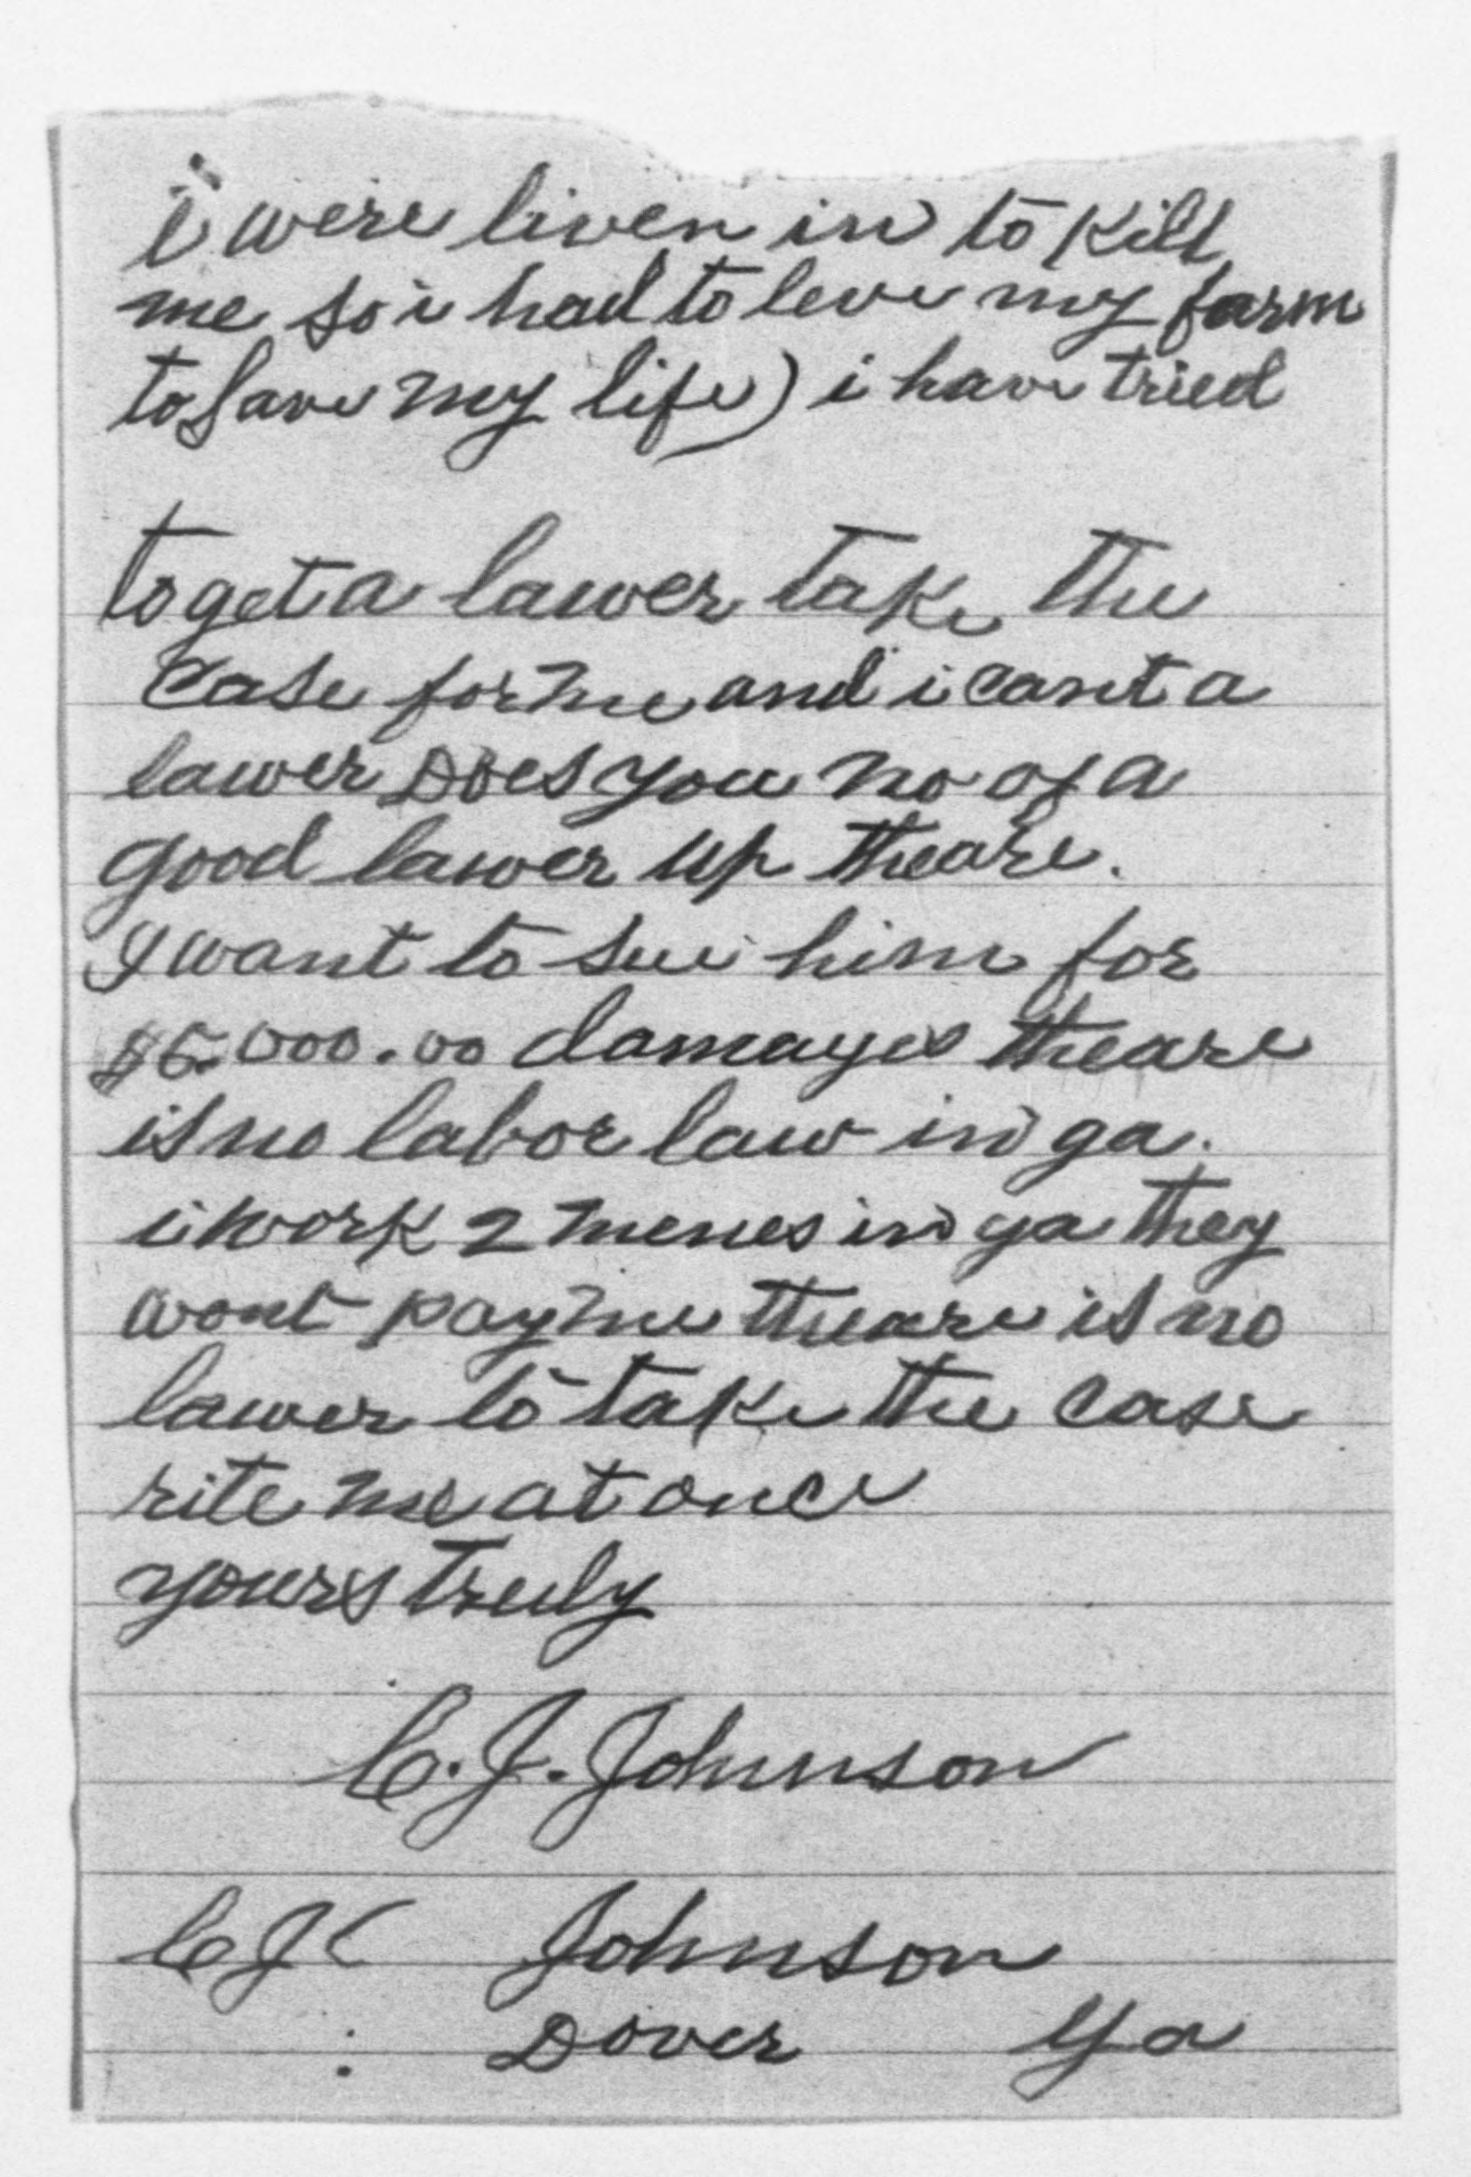 i were liven in to kill
me so i had to leve my farm
to save my life) i have tried
to get a lawer take the
case for me and i cant a
lawer Does you no of a
good lawer up theare.
I want to sue him for
$5000.00 damages theare
is no labor law in ga.
i work 2 menes in ga they
wont pay me theare is no
lawer to take the case
rite me at once
yours truly
C. J. Johnson
C J Johnson
Dover Ga